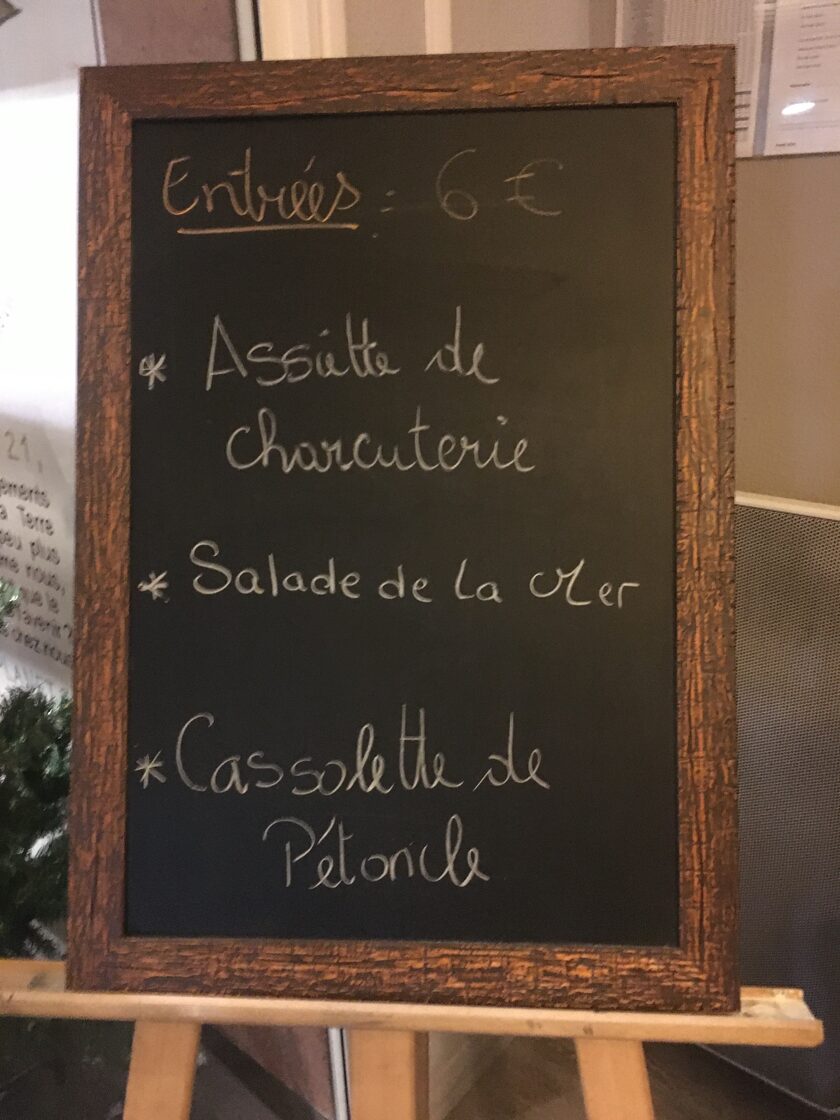 Entrées : 6 €
* Assiette de
charcuterie
* Salade de la Mer
* Cassolette de
Pétoncle
21,
Terre
peu plus
nous,
l'avenir ?
chez nous